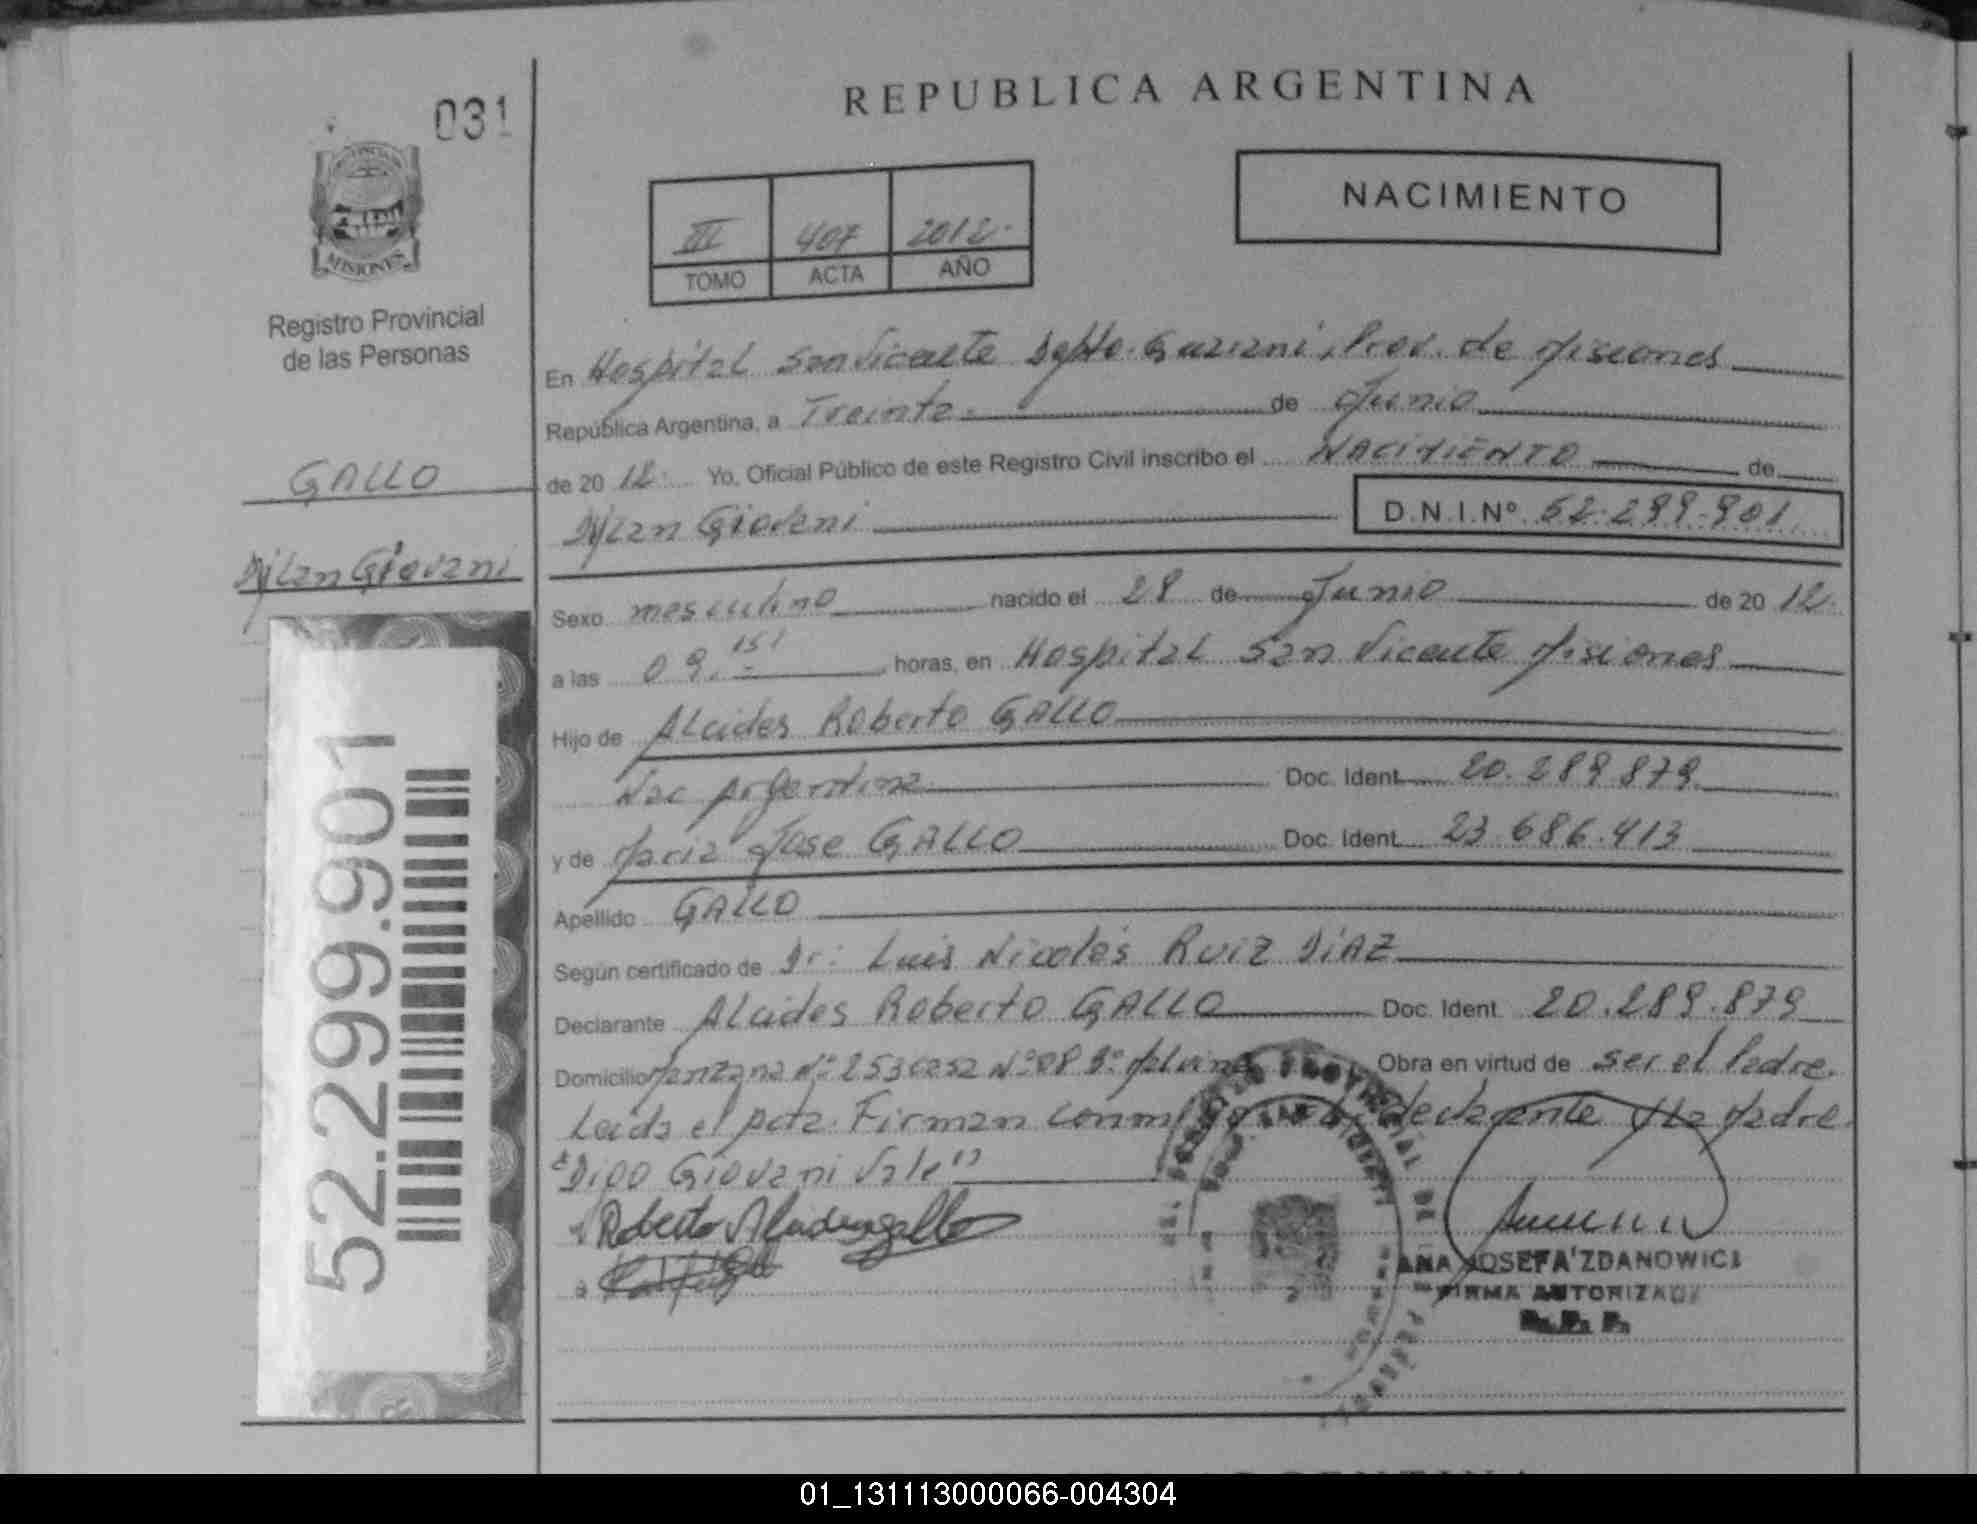 031
MISIONES
Registro Provincial
de las Personas
GALLO
Dylan Giovani
52.299.901
REPUBLICA ARGENTINA
NACIMIENTO
III 407 2012.
TOMO ACTA AÑO
En Hospital San Vicente Dpto. Guarani, Prov. de Misiones
República Argentina, a Treinta de Junio
de 2012. Yo, Oficial Público de este Registro Civil inscribo el NACIMIENTO de
Dylan Giovani D.N.I.Nº 52.299.901
Sexo masculino nacido el 28 de Junio de 2012.
a las 09.15' horas, en Hospital San Vicente Misiones
Hijo de Alcides Roberto GALLO
Nac Argentina Doc. Ident. 20.289.879
y de Maria Jose GALLO Doc. Ident. 23.686.413
Apellido GALLO
Según certificado de Dr: Luis Nicolás Ruiz DiAZ
Declarante Alcides Roberto GALLO Doc. Ident. 20.289.879
Domicilio Manzana Nº 253 casa Nº 08 Bº Malvinas Obra en virtud de ser el Padre.
Leida el Acta. Firman conmigo el declarante y la Madre.
"Digo Giovani Vale"
ANA JOSEFA ZDANOWICZ
FIRMA AUTORIZADA
R. P. P.
01_131113000066-004304